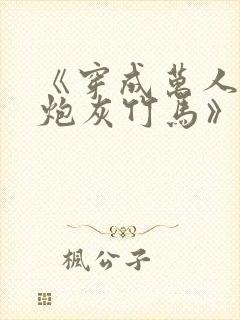 《穿成萬人
炮灰竹馬》
楓公子